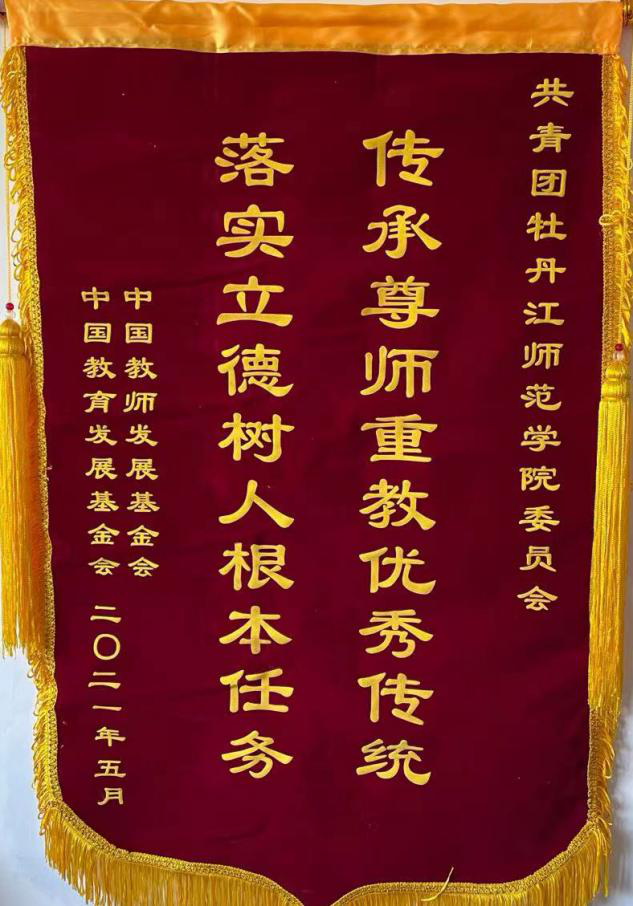 共青团牡丹江师范学院委员会
传承尊师重教优秀传统
落实立德树人根本任务
中国教师发展基金会
中国教育发展基金会
二〇二一年五月